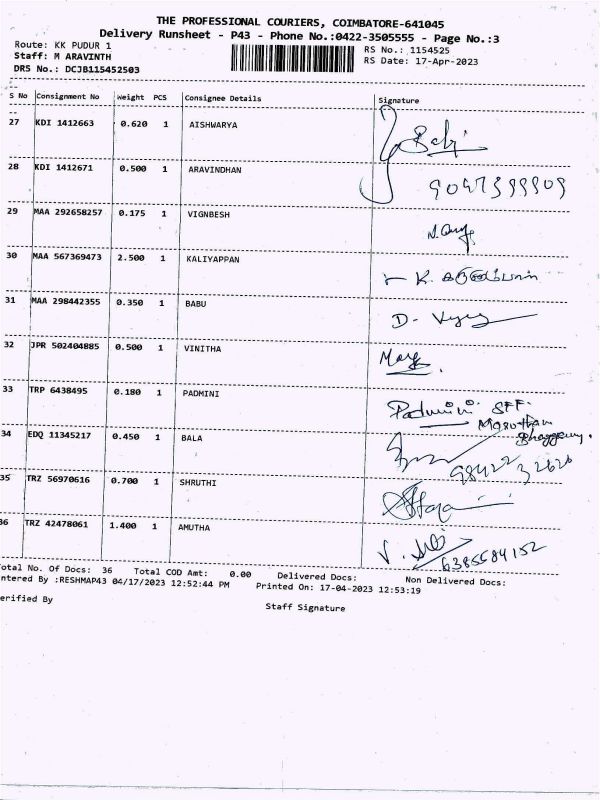 THE PROFESSIONAL COURIERS, COIMBATORE-641045
Delivery Runsheet - P43 - Phone No.:0422-3505555 - Page No.:3
Route: KK PUDUR 1
RS No.: 1154525
Staff: M ARAVINTH
RS Date: 17-Apr-2023
DRS No.: DCJB115452503
S No Consignment No Weight PCS Consignee Details Signature
27 KDI 1412663 0.620 1 AISHWARYA
28 KDI 1412671 0.500 1 ARAVINDHAN
29 MAA 292658257 0.175 1 VIGNBESH
30 MAA 567369473 2.500 1 KALIYAPPAN K.
31 MAA 298442355 0.350 1 BABU D-
32 JPR 502404885 0.500 1 VINITHA
33 TRP 6438495 0.180 1 PADMINI Padmini
34 EDQ 11345217 0.450 1 BALA
35 TRZ 56970616 0.700 1 SHRUTHI
36 TRZ 42478061 1.400 1 AMUTHA V. 6385584152
otal No. Of Docs: 36 Total COD Amt: 0.00 Delivered Docs: Non Delivered Docs:
ntered By :RESHMAP43 04/17/2023 12:52:44 PM Printed On: 17-04-2023 12:53:19
erified By
Staff Signature